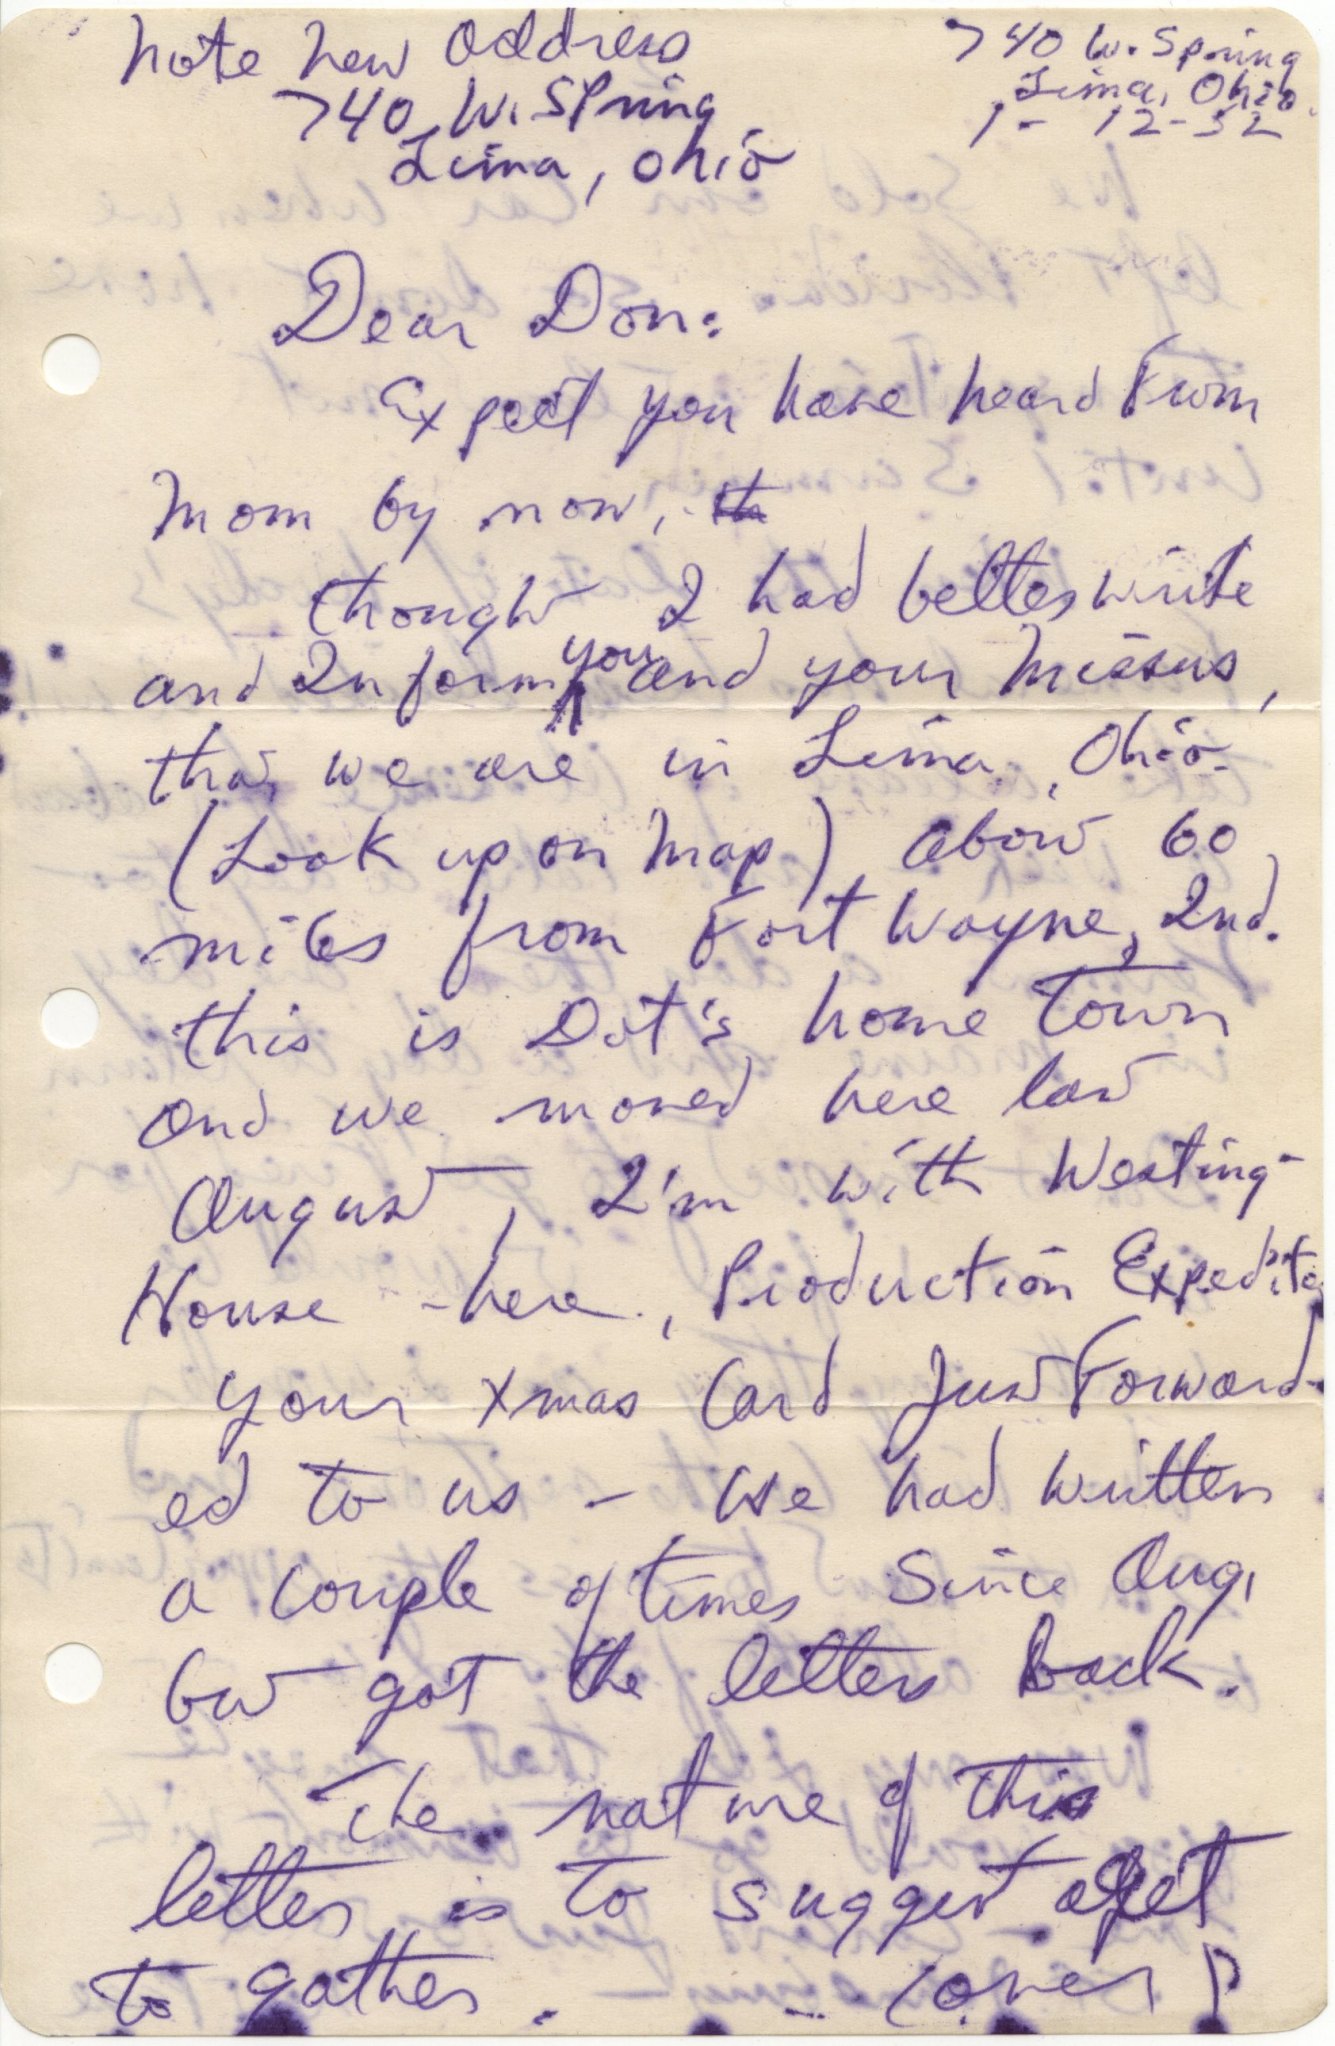 Note New Address
740 W. Spring
Lima, Ohio
740 W. Spring
Lima, Ohio
1-12-52
Dear Don:
Expect you have heard From
Mom by now,
thought I had better write
and Inform you and your Missus,
that we are in Lima, Ohio.
(Look up on Map) about 60
miles from Fort Wayne, Ind.
this is Dot's home Town
and we moved here last
August, I'm with Westing-
House - here, Production Expedite
your Xmas Card Just Forward-
ed to us - We had written
a couple of times Since Aug,
but got the letters Back.
The nature of this
letter is to suggest a get
to gather. (over)